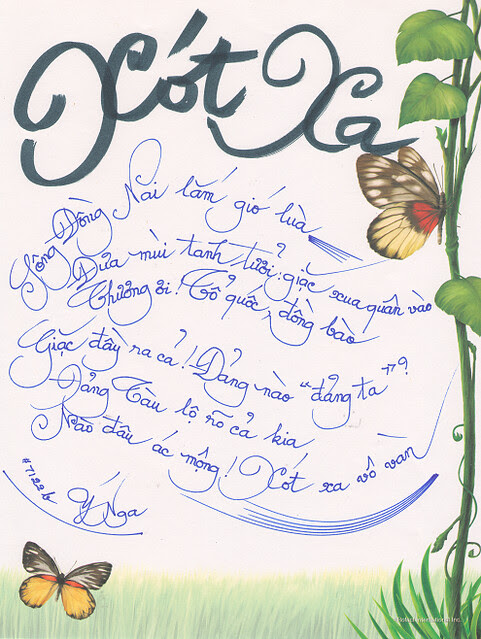 Xót Xa
Sông Đồng Nai lắm gió lùa
Đưa mùi tanh tưởi: giặc xua quân vào
Thương ơi! Tổ quốc, đồng bào
Giặc đấy ra cả! Đảng nào “đảng ta”?
Đảng Tàu lộ rõ cả kia
Nào đâu ác mộng! Xót xa vô vàn
Ý Nga